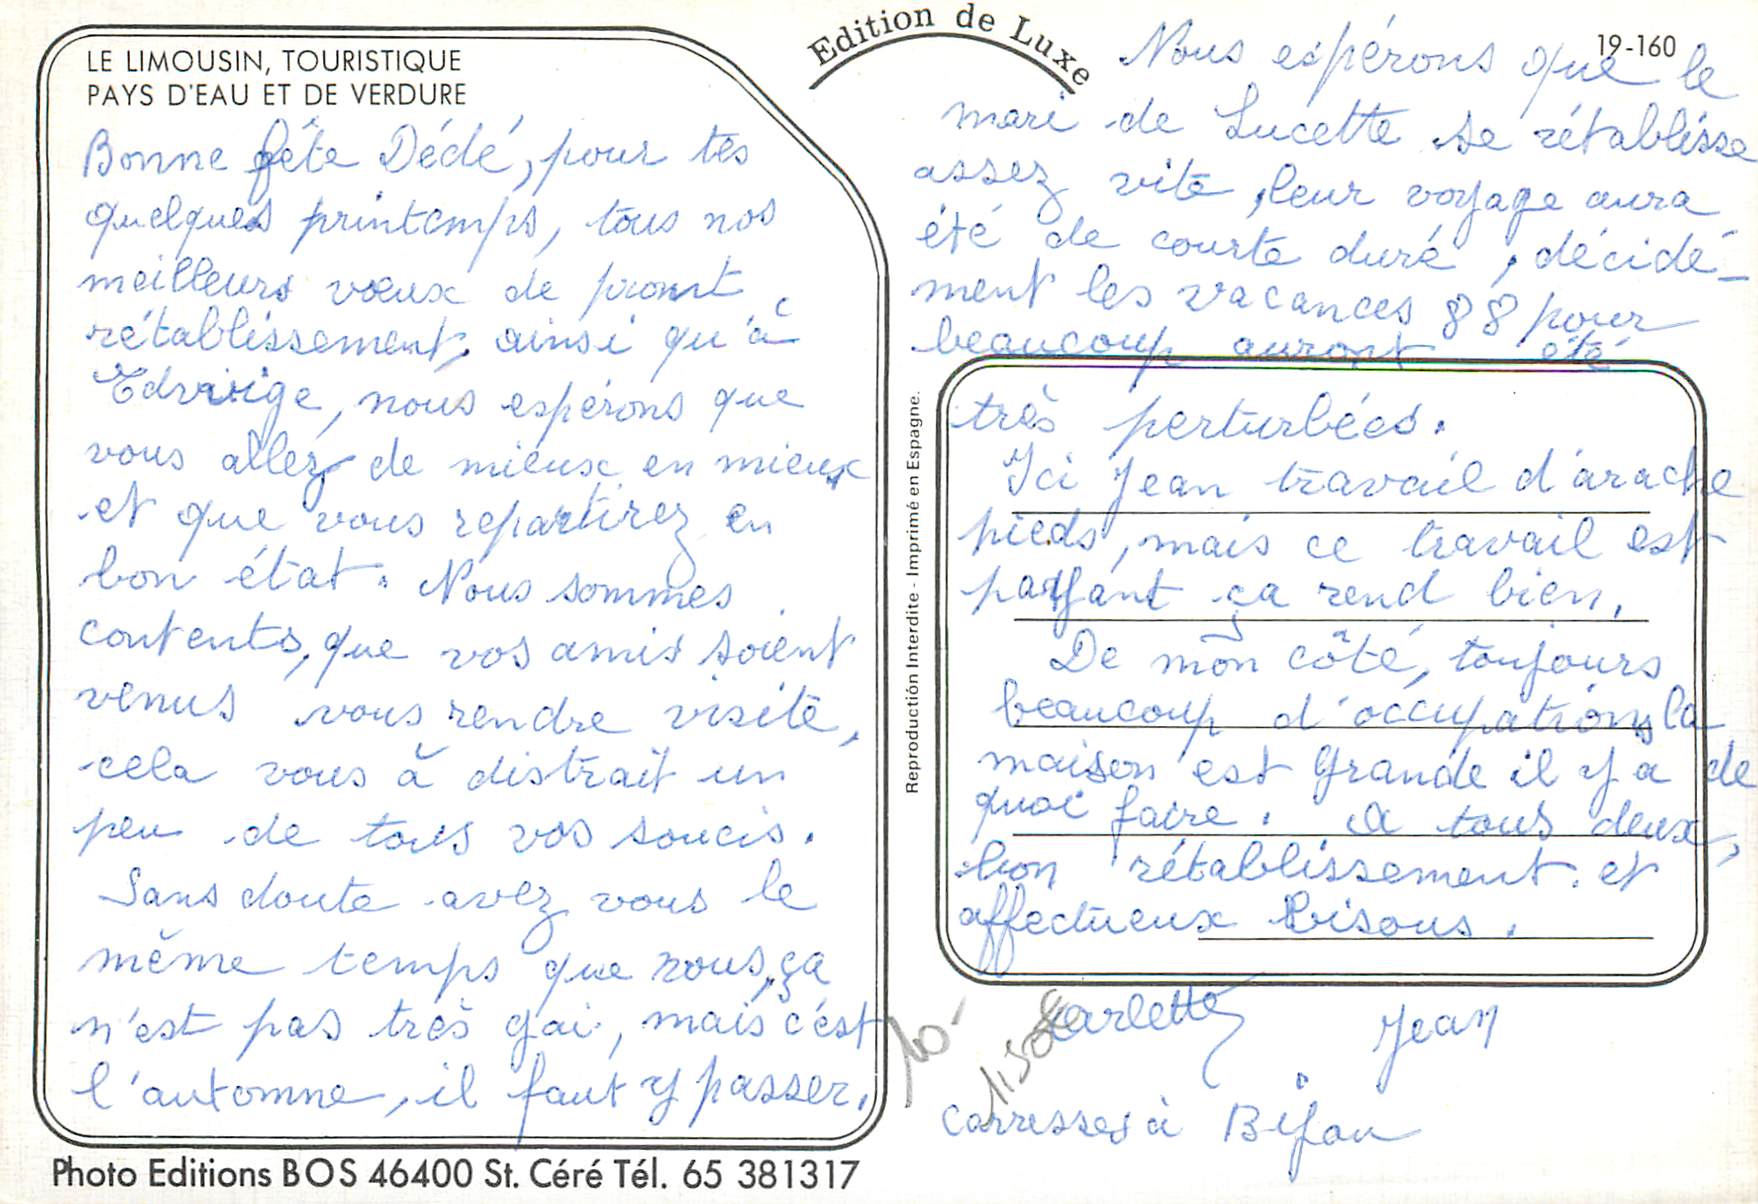 LE LIMOUSIN, TOURISTIQUE
PAYS D'EAU ET DE VERDURE
Bonne fête Dédé, pour tes
quelques printemps, tous nos
meilleurs vœux de promt
rétablissement, ainsi qu'à
Edwige, nous espérons que
vous allez de mieux en mieux
et que vous repartirez en
bon état. Nous sommes
contents, que vos amis soient
venus vous rendre visite,
cela vous à distrait un
peu de tous vos soucis.
Sans doute avez vous le
même temps que nous, ça
n'est pas très gai, mais c'est
l'automne, il faut y passer.
Photo Editions BOS 46400 St. Céré Tél. 65 381317
Edition de Luxe
19-160
Nous espérons que le
mari de Lucette se rétablisse
assez vite, leur voyage aura
été de courte duré, décidé-
ment les vacances 88 pour
beaucoup auront été
très perturbées.
Ici Jean travail d'arache
pieds, mais ce travail est
payant ça rend bien.
De mon côté, toujours
beaucoup d'occupations la
maison est grande il y a de
quoi faire. A tous deux,
bon rétablissement et
affectueux bisous.
Reproduction Interdite - Imprimé en Espagne.
Carlette Jean
10-
Carresses à Bijou